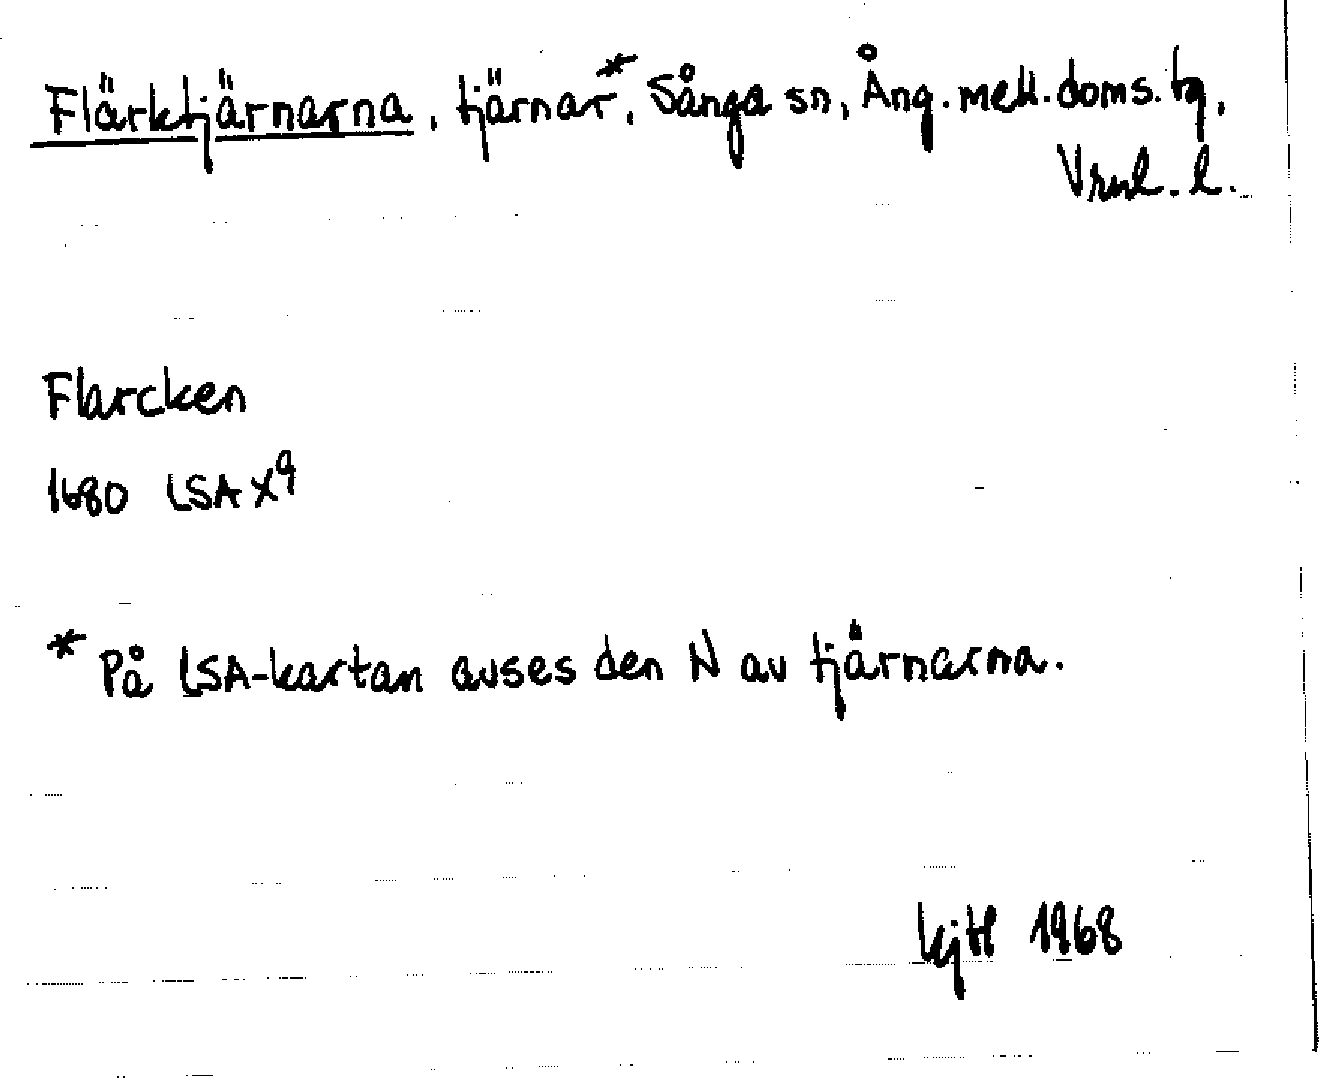 Flärktjärnarna, tjärnar*, Sånga sn, Ång. mell. doms. tg,
Vrnl. l.
Flarcken
1680 LSA X9
* På LSA-kartan avses den N av tjärnarna.
1968